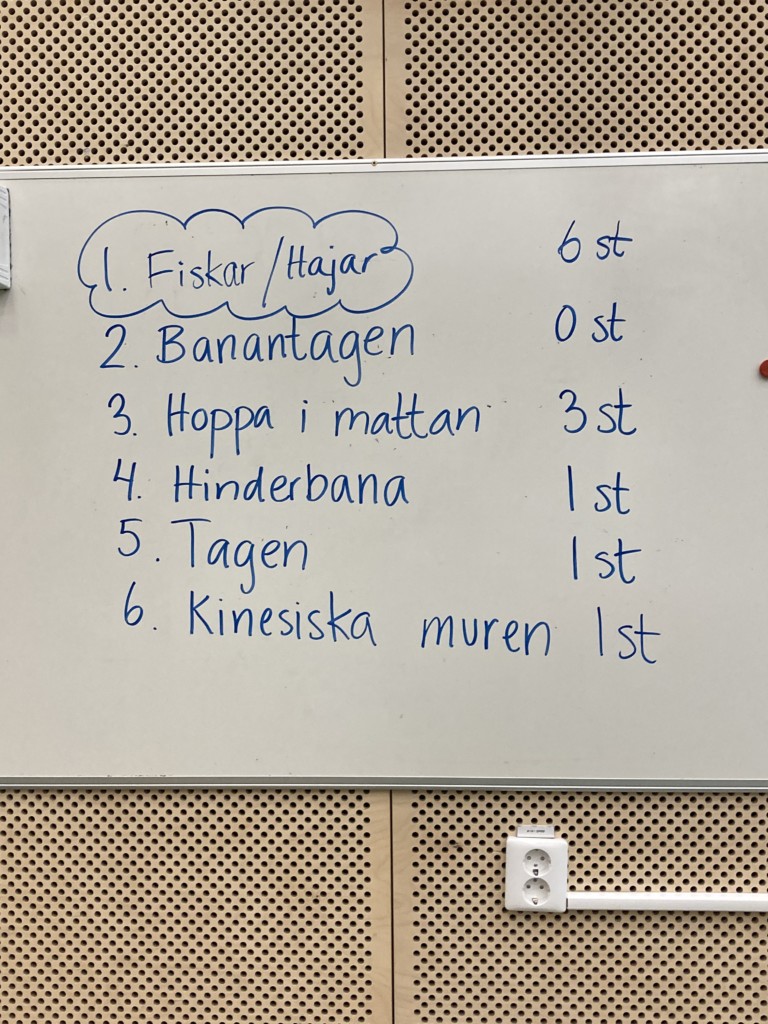 1. Fiskar/Hajar 6 st
2. Banantagen 0 st
3. Hoppa i mattan 3 st
4. Hinderbana 1 st
5. Tagen 1 st
6. Kinesiska muren 1 st